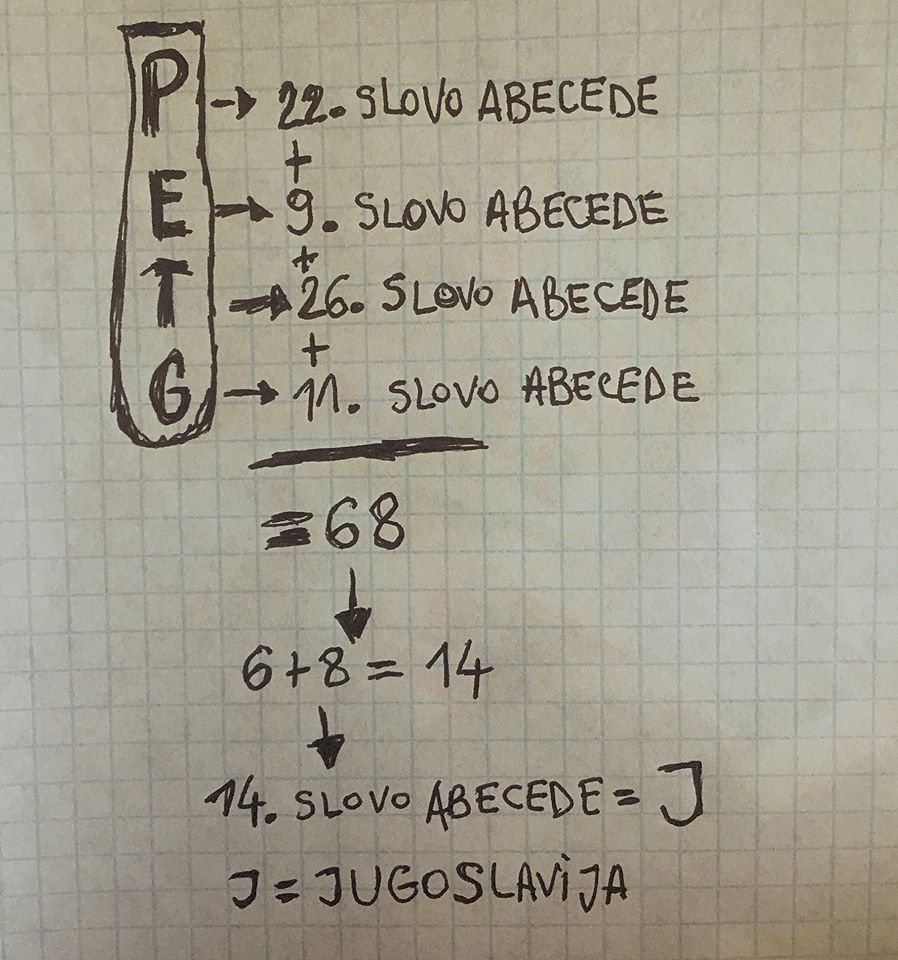 P → 22. SLOVO ABECEDE
+
E → 9. SLOVO ABECEDE
+
T → 26. SLOVO ABECEDE
+
G → 11. SLOVO ABECEDE
= 68
6+8 = 14
14. SLOVO ABECEDE = J
J = JUGOSLAViJA